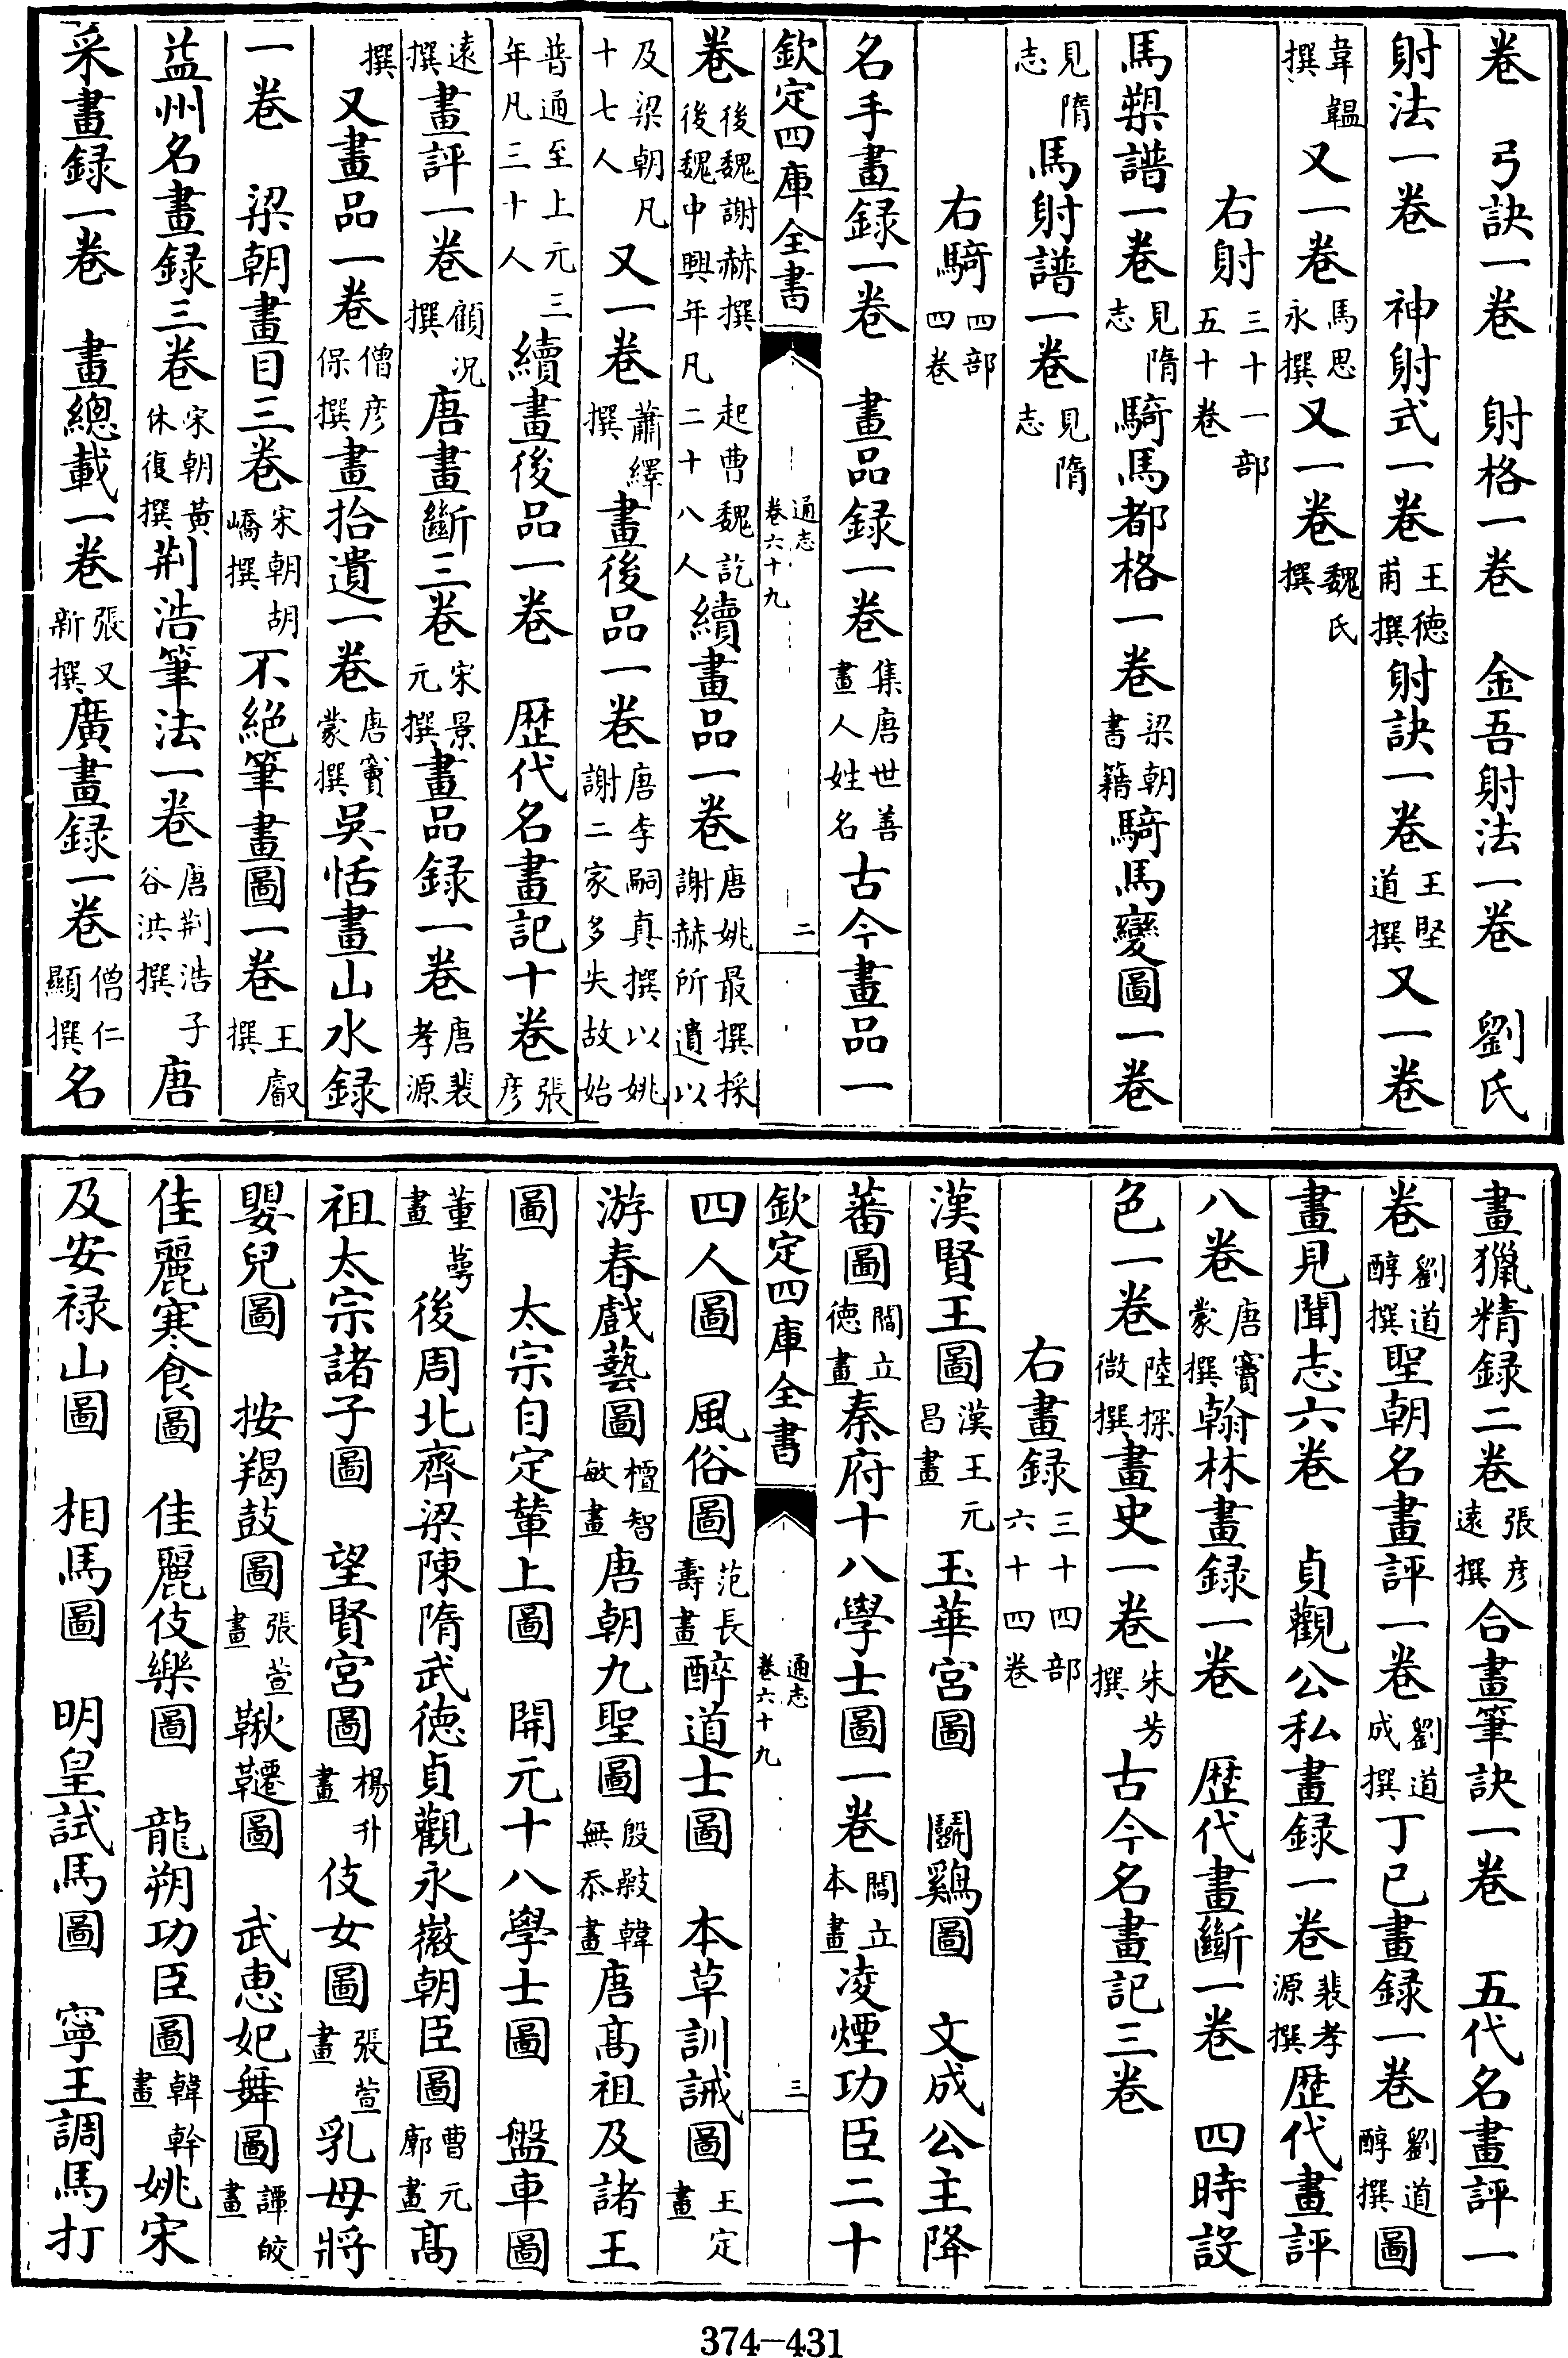 卷　弓訣一卷　射格一卷　金吾射法一卷　劉氏
射法一卷　神射式一卷王德甫撰射訣一卷王堅道撰又一卷
韋韞撰又一卷馬思永撰又一卷魏氏撰
右射三十一部五十卷
馬槊譜一卷見隋志騎馬都格一卷梁朝書籍騎馬變圖一卷
見隋志馬射譜一卷見隋志
右騎四部四卷
名手畫録一卷　畫品録一卷集唐世善畫人姓名古今畫品一
欽定四庫全書　通志卷六十九　二
卷後魏謝赫撰起曹魏訖後魏中興年凡二十八人續畫品一卷唐姚最撰採謝赫所遺以
及梁朝凡十七人又一卷蕭繹撰畫後品一卷唐李嗣真撰以姚謝二家多失故始
普通至上元三年凡三十人續畫後品一卷　歴代名畫記十卷張彦
逺撰畫評一卷顧况撰唐畫斷三卷宋景元撰畫品録一卷唐裴孝源
撰又畫品一卷僧彦保撰畫拾遺一卷唐竇蒙撰吳恬畫山水録
一卷　梁朝畫目三卷宋朝胡嶠撰不絕筆畫圖一卷王叡撰
益州名畫録三卷宋朝黃休復撰荆浩筆法一卷唐荆浩子谷洪撰唐
采畫録一卷　畫總載一卷張又新撰廣畫録一卷僧仁顯撰名
畫獵精録二卷張彦逺撰合畫筆訣一卷　五代名畫評一
卷劉道醇撰聖朝名畫評一卷劉道成撰丁巳畫録一卷劉道醇撰圖
畫見聞志六卷　貞觀公私畫録一卷裴孝源撰歴代畫評
八卷唐竇蒙撰翰林畫録一卷　歴代畫斷一卷　四時設
色一卷陸探微撰畫史一卷朱芳撰古今名畫記三卷
右畫録三十四部六十四卷
漢賢王圖漢王元昌畫　玉華宮圖　鬭鷄圖　文成公主降
蕃圖閻立德畫秦府十八學士圖一卷閻立本畫凌煙功臣二十
欽定四庫全書　通志卷六十九　三
四人圖　風俗圖范長壽畫醉道士圖　本草訓誡圖王定畫
游春戲藝圖檀智敏畫唐朝九聖圖殷㪄韓無忝畫唐髙祖及諸王
圖　太宗自定輦上圖　開元十八學士圖　盤車圖
董萼畫後周北齊梁陳隋武德貞觀永徽朝臣圖曹元廓畫髙
祖太宗諸子圖　望賢宮圖楊升畫伎女圖張萱畫乳母將
嬰兒圖　按羯鼓圖張萱畫鞦韆圖　武惠妃舞圖譚皎畫
佳麗寒食圖　佳麗伎樂圖　龍朔功臣圖韓幹畫姚宋
及安禄山圖　相馬圖　明皇試馬圖　寧王調馬打
374-431